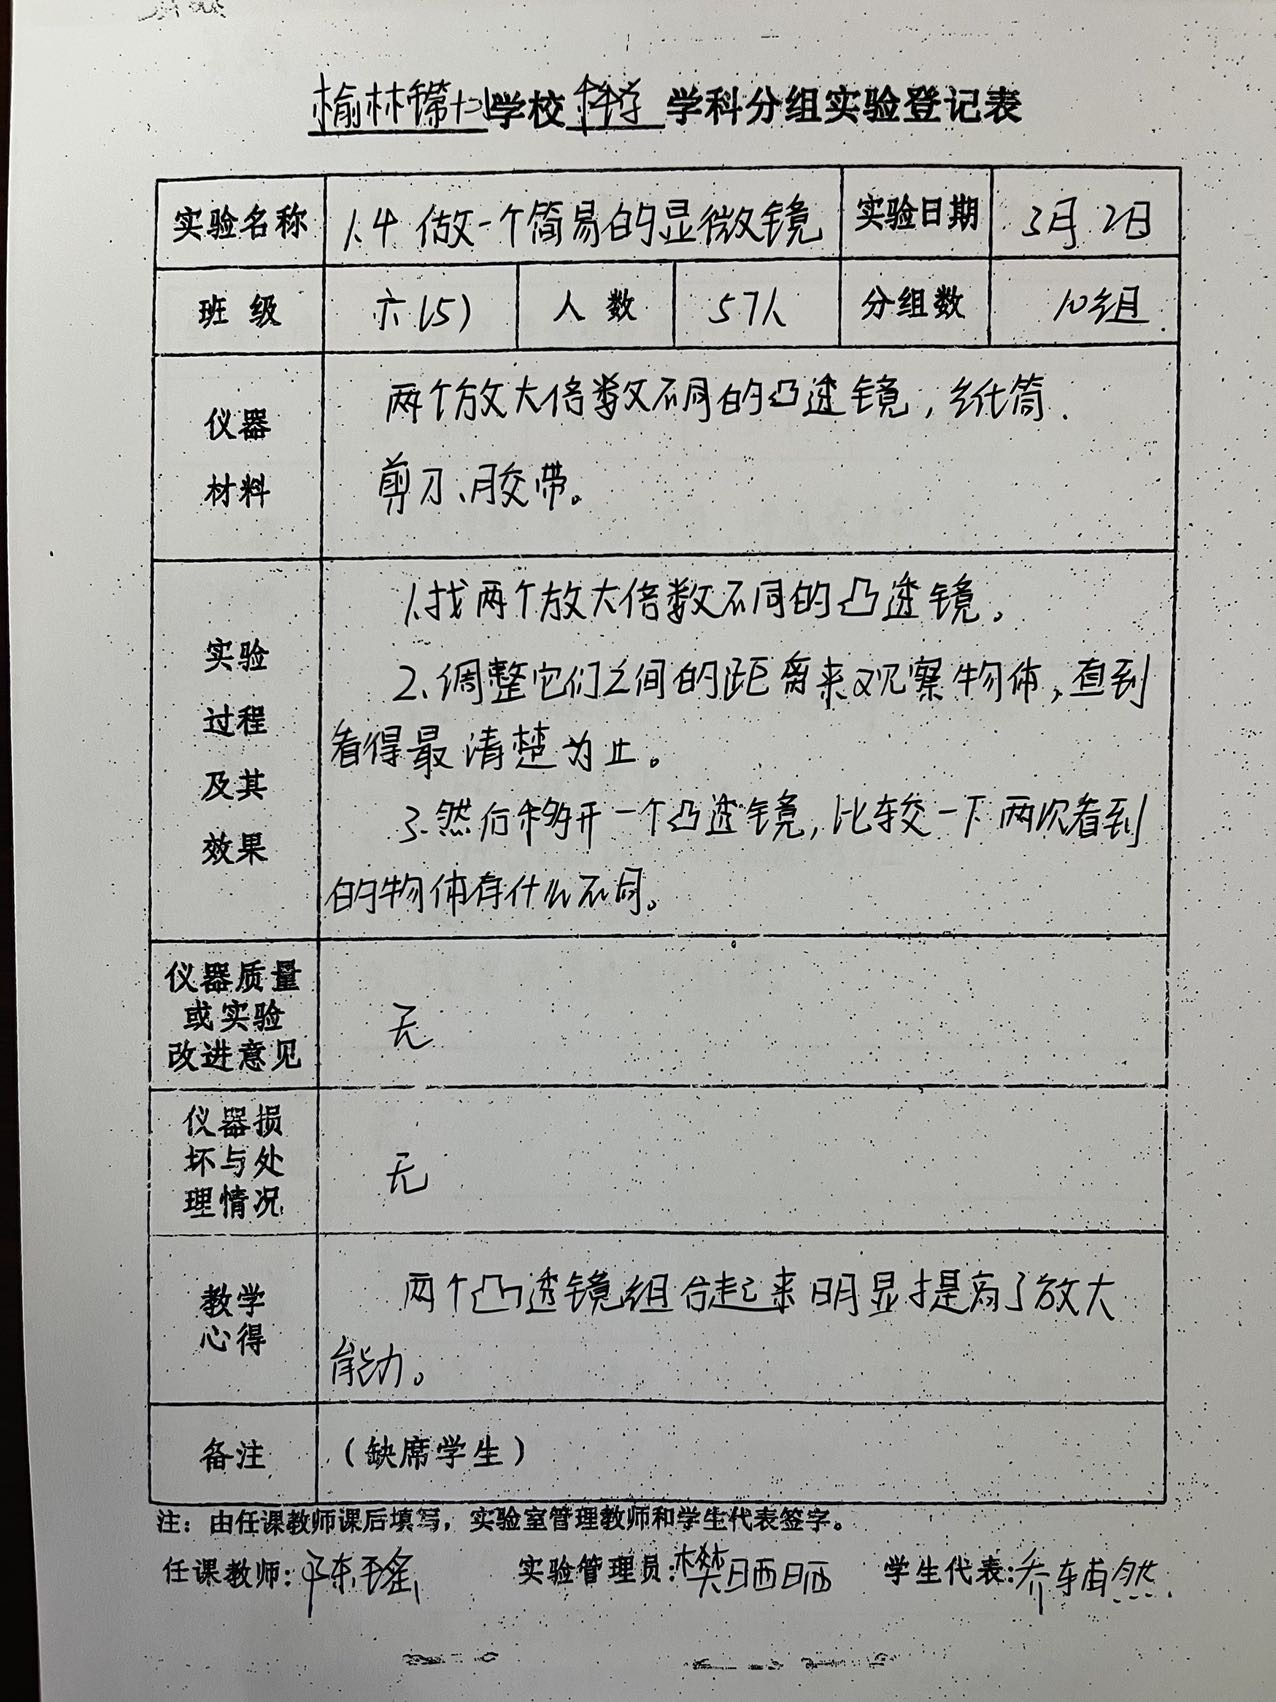 榆林第十小学校 科学 学科分组实验登记表
实验名称 1.4 做一个简易的显微镜 实验日期 3月2日
班 级 六(5) 人 数 57人 分组数 10组
仪器 材料 两个放大倍数不同的凸透镜,纸筒.
剪刀、胶带。
实验 过程 及其 效果 1.找两个放大倍数不同的凸透镜。
2.调整它们之间的距离来观察物体,直到
看得最清楚为止。
3.然后移开一个凸透镜,比较一下两次看到
的物体有什么不同。
仪器质量
或实验
改进意见 无
仪器损
坏与处
理情况 无
教学 心得 两个凸透镜组合起来明显提高了放大
能力。
备注 (缺席学生)
注:由任课教师课后填写,实验室管理教师和学生代表签字。
任课教师:陈瑶 实验管理员:樊晒晒 学生代表:乔辅然